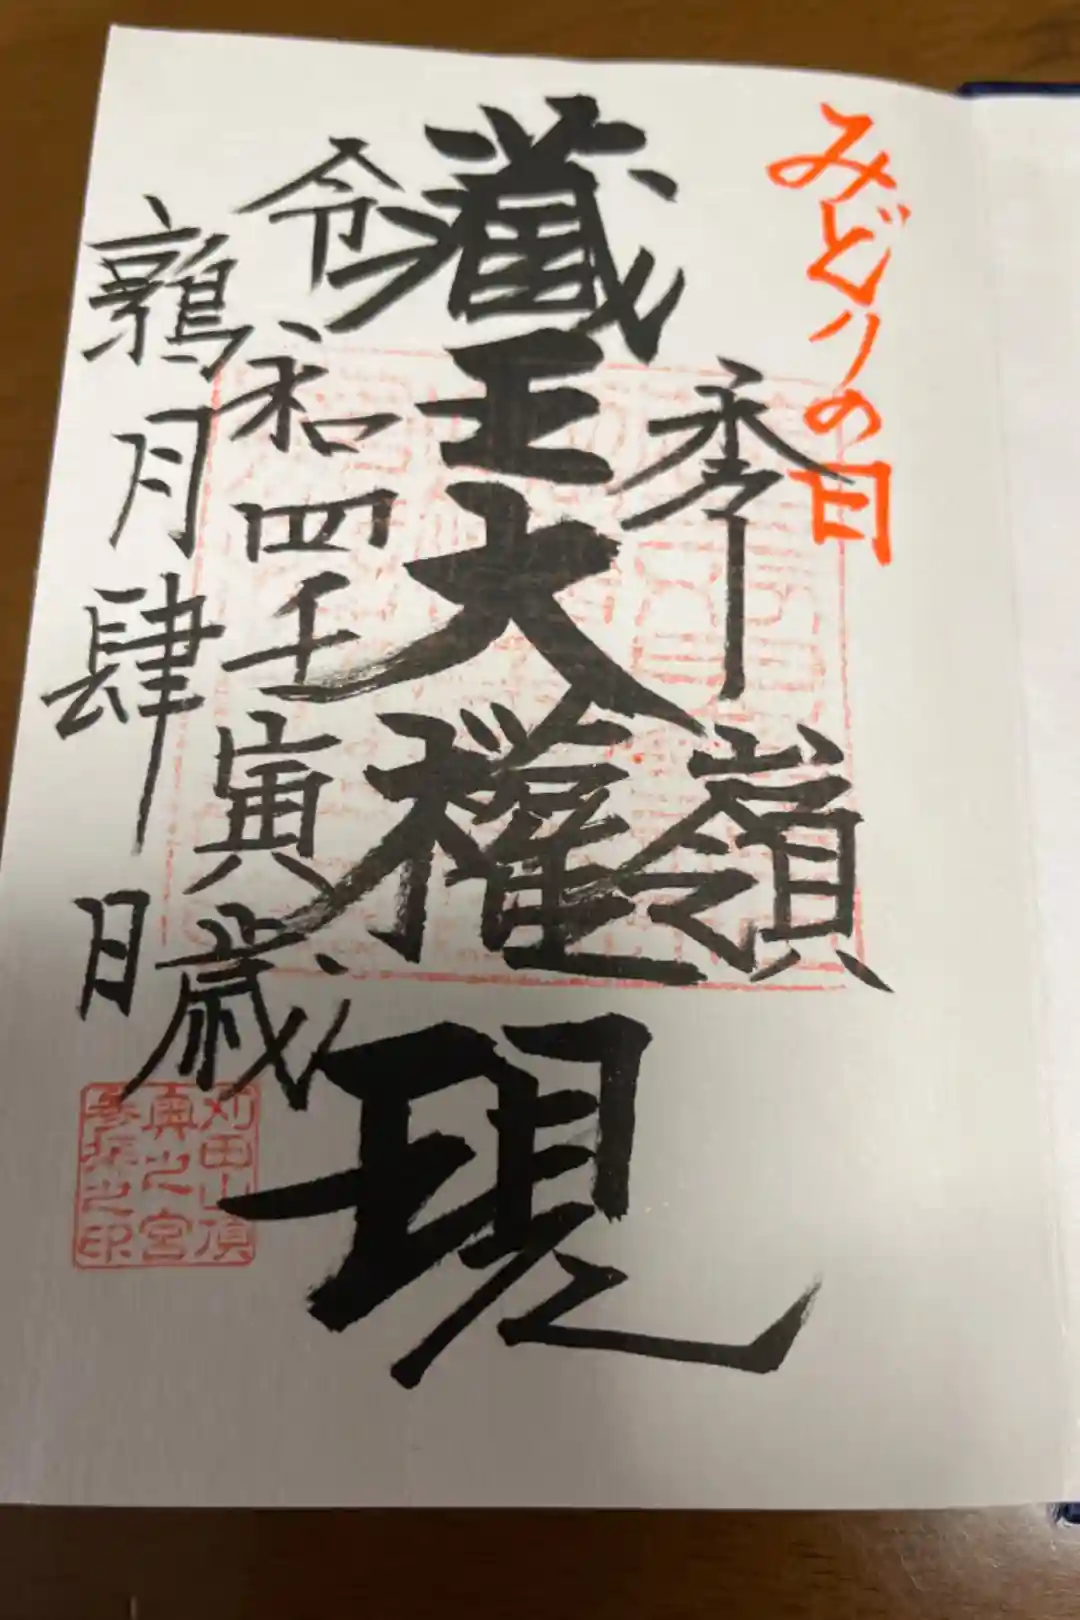 みどりの日
秀嶺
蔵王大権現
令和四年寅歳
鶉月肆日
刈田山頂
奥之宮
参拝之印